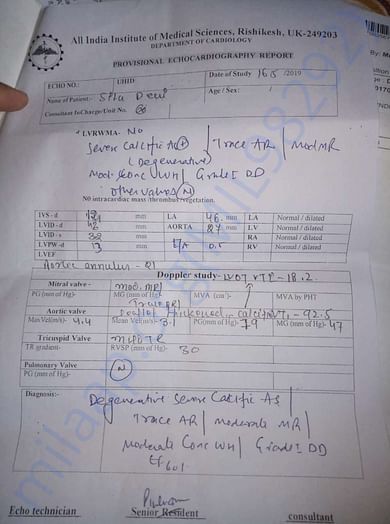 All India Institute of Medical Sciences, Rishikesh, UK-249203
DEPARTMENT OF CARDIOLOGY
PROVISIONAL ECHOCARDIOGRAPHY REPORT
ECHO NO.: UHID Date of Study 16/5/2019
Name of Patient:- Devi Age / Sex: /
Consultant InCharge/Unit No.
LVRWMA- NO
Severe Calcific AS Trace AR Mod MR
(Degenerative)
Mod. Conc LVH Grade I DD
Other valves (N)
N0 intracardiac mass/thrombus/vegetation.
IVS-d mm LA 46 mm LA Normal / dilated
LVID - d mm AORTA 27 mm LV Normal / dilated
LVID - s 32 mm RA Normal / dilated
LVPW-d 13 mm E/A 0.5 RV Normal / dilated
LVEF
Aortic annulus - 21
Doppler study- LVOT VTI - 18.2
Mitral valve - mod. MR
PG (mm of Hg)- MG (mm of Hg)- MVA (cm²)- MVA by PHT
Trace AR
Aortic valve thickened calcific VTI - 92.5
MaxVel(m/s)- 4.4 Mean Vel(m/s)- 3.1 PG(mm of Hg)- 79 MG (mm of Hg)- 47
Tricuspid Valve mild TR
TR gradient- RVSP (mm of Hg)- 30
Pulmonary Valve (N)
PG (mm of Hg)-
Diagnosis:- Degenerative Severe Calcific AS
Trace AR | moderate MR
Moderate Conc LVH | Grade I DD
EF 60%
Echo technician Senior Resident consultant